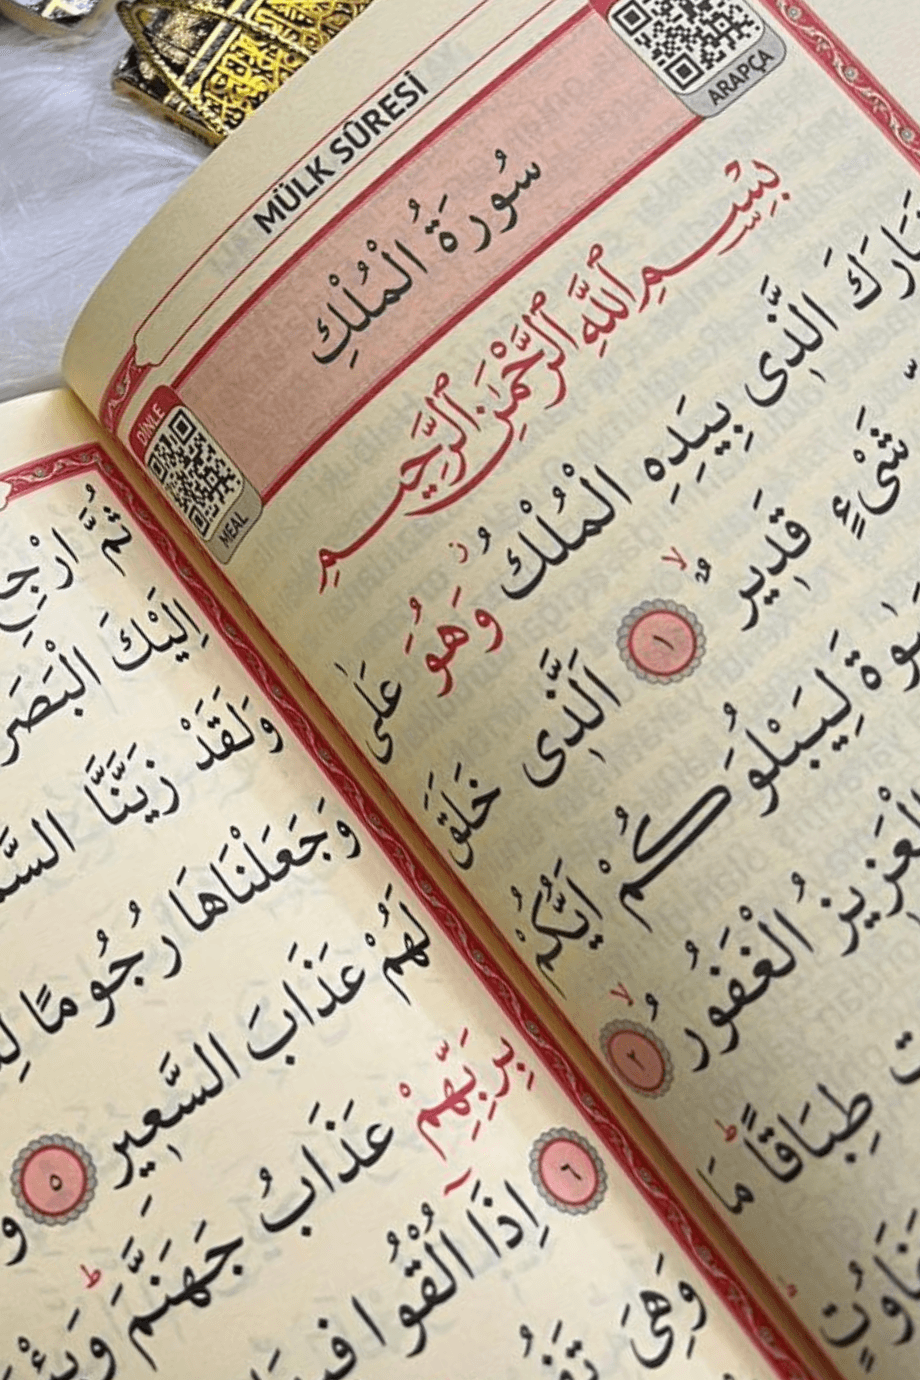 MÜLK SÛRESİ
ARAPÇA
سُورَةُ الْمُلْكِ
DİNLE
MEAL
بِسْمِ اللّٰهِ الرَّحْمٰنِ الرَّحِيمِ
الَّذِى بِيَدِهِ الْمُلْكُ وَهُوَ عَلٰى
شَىْءٍ قَدِيرٌ ۙ ١ اَلَّذِى خَلَقَ
لِيَبْلُوَكُمْ اَيُّكُمْ
الْعَزِيزُ الْغَفُورُ ۙ ٢
طِبَاقًا ۜ مَا
ثُمَّ ارْجِعِ
اِلَيْكَ الْبَصَرُ
وَلَقَدْ زَيَّنَّا
وَجَعَلْنَاهَا رُجُومًا
لَهُمْ عَذَابَ السَّعِيرِ ٥
بِرَبِّهِمْ عَذَابُ جَهَنَّمَ ۜ
٦ اِذَٓا اُلْقُوا فِيهَا
وَهِىَ